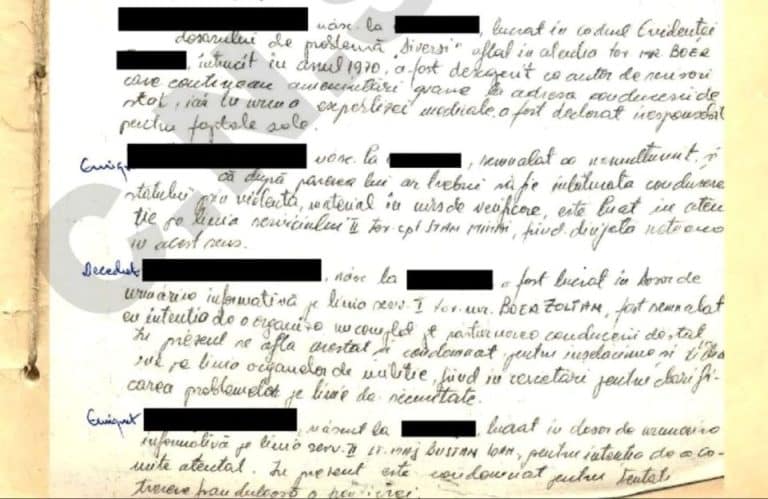 născ. la , lucrat în cadrul Evidenței
dosarului de problemă "Diverși" aflat în atenția tov mr. BOER
, întrucît în anul 1970, a fost descoperit ca autor de scrisori
care conțineau amenințări grave la adresa conducerii de
stat, iar în urma expertizei medicale, a fost declarat iresponsabil
pentru faptele sale.
Emigrat născ. la , semnalat ca nemulțumit, și
că după părerea lui ar trebui să fie înlăturată conducerea
statului prin violență, material în curs de verificare, este luat în aten
ție pe linia serviciului II tov. cpt STAN MIHAI, fiind dirijată rețeaua
în acest sens.
Decedat , născ la a fost lucrat în dosar de
urmărire informativă pe linia serv. I tov. mr. BOER ZOLTAN, fost semnalat
cu intenția de a organiza un complot pt. răsturnarea conducerii de stat
În prezent se afla arestat și condamnat pentru înșelăciune și
pe linia organelor de miliție, fiind în cercetări pentru clarifi-
carea problemelor pe linie de securitate.
Emigrat născut la , lucrat în dosar de urmărire
informativă pe linia serv. II lt. maj BUSTAN IOAN, pentru intenția de a co-
mite atentat. În prezent este condamnat pentru tentati
trecere frauduloasă a